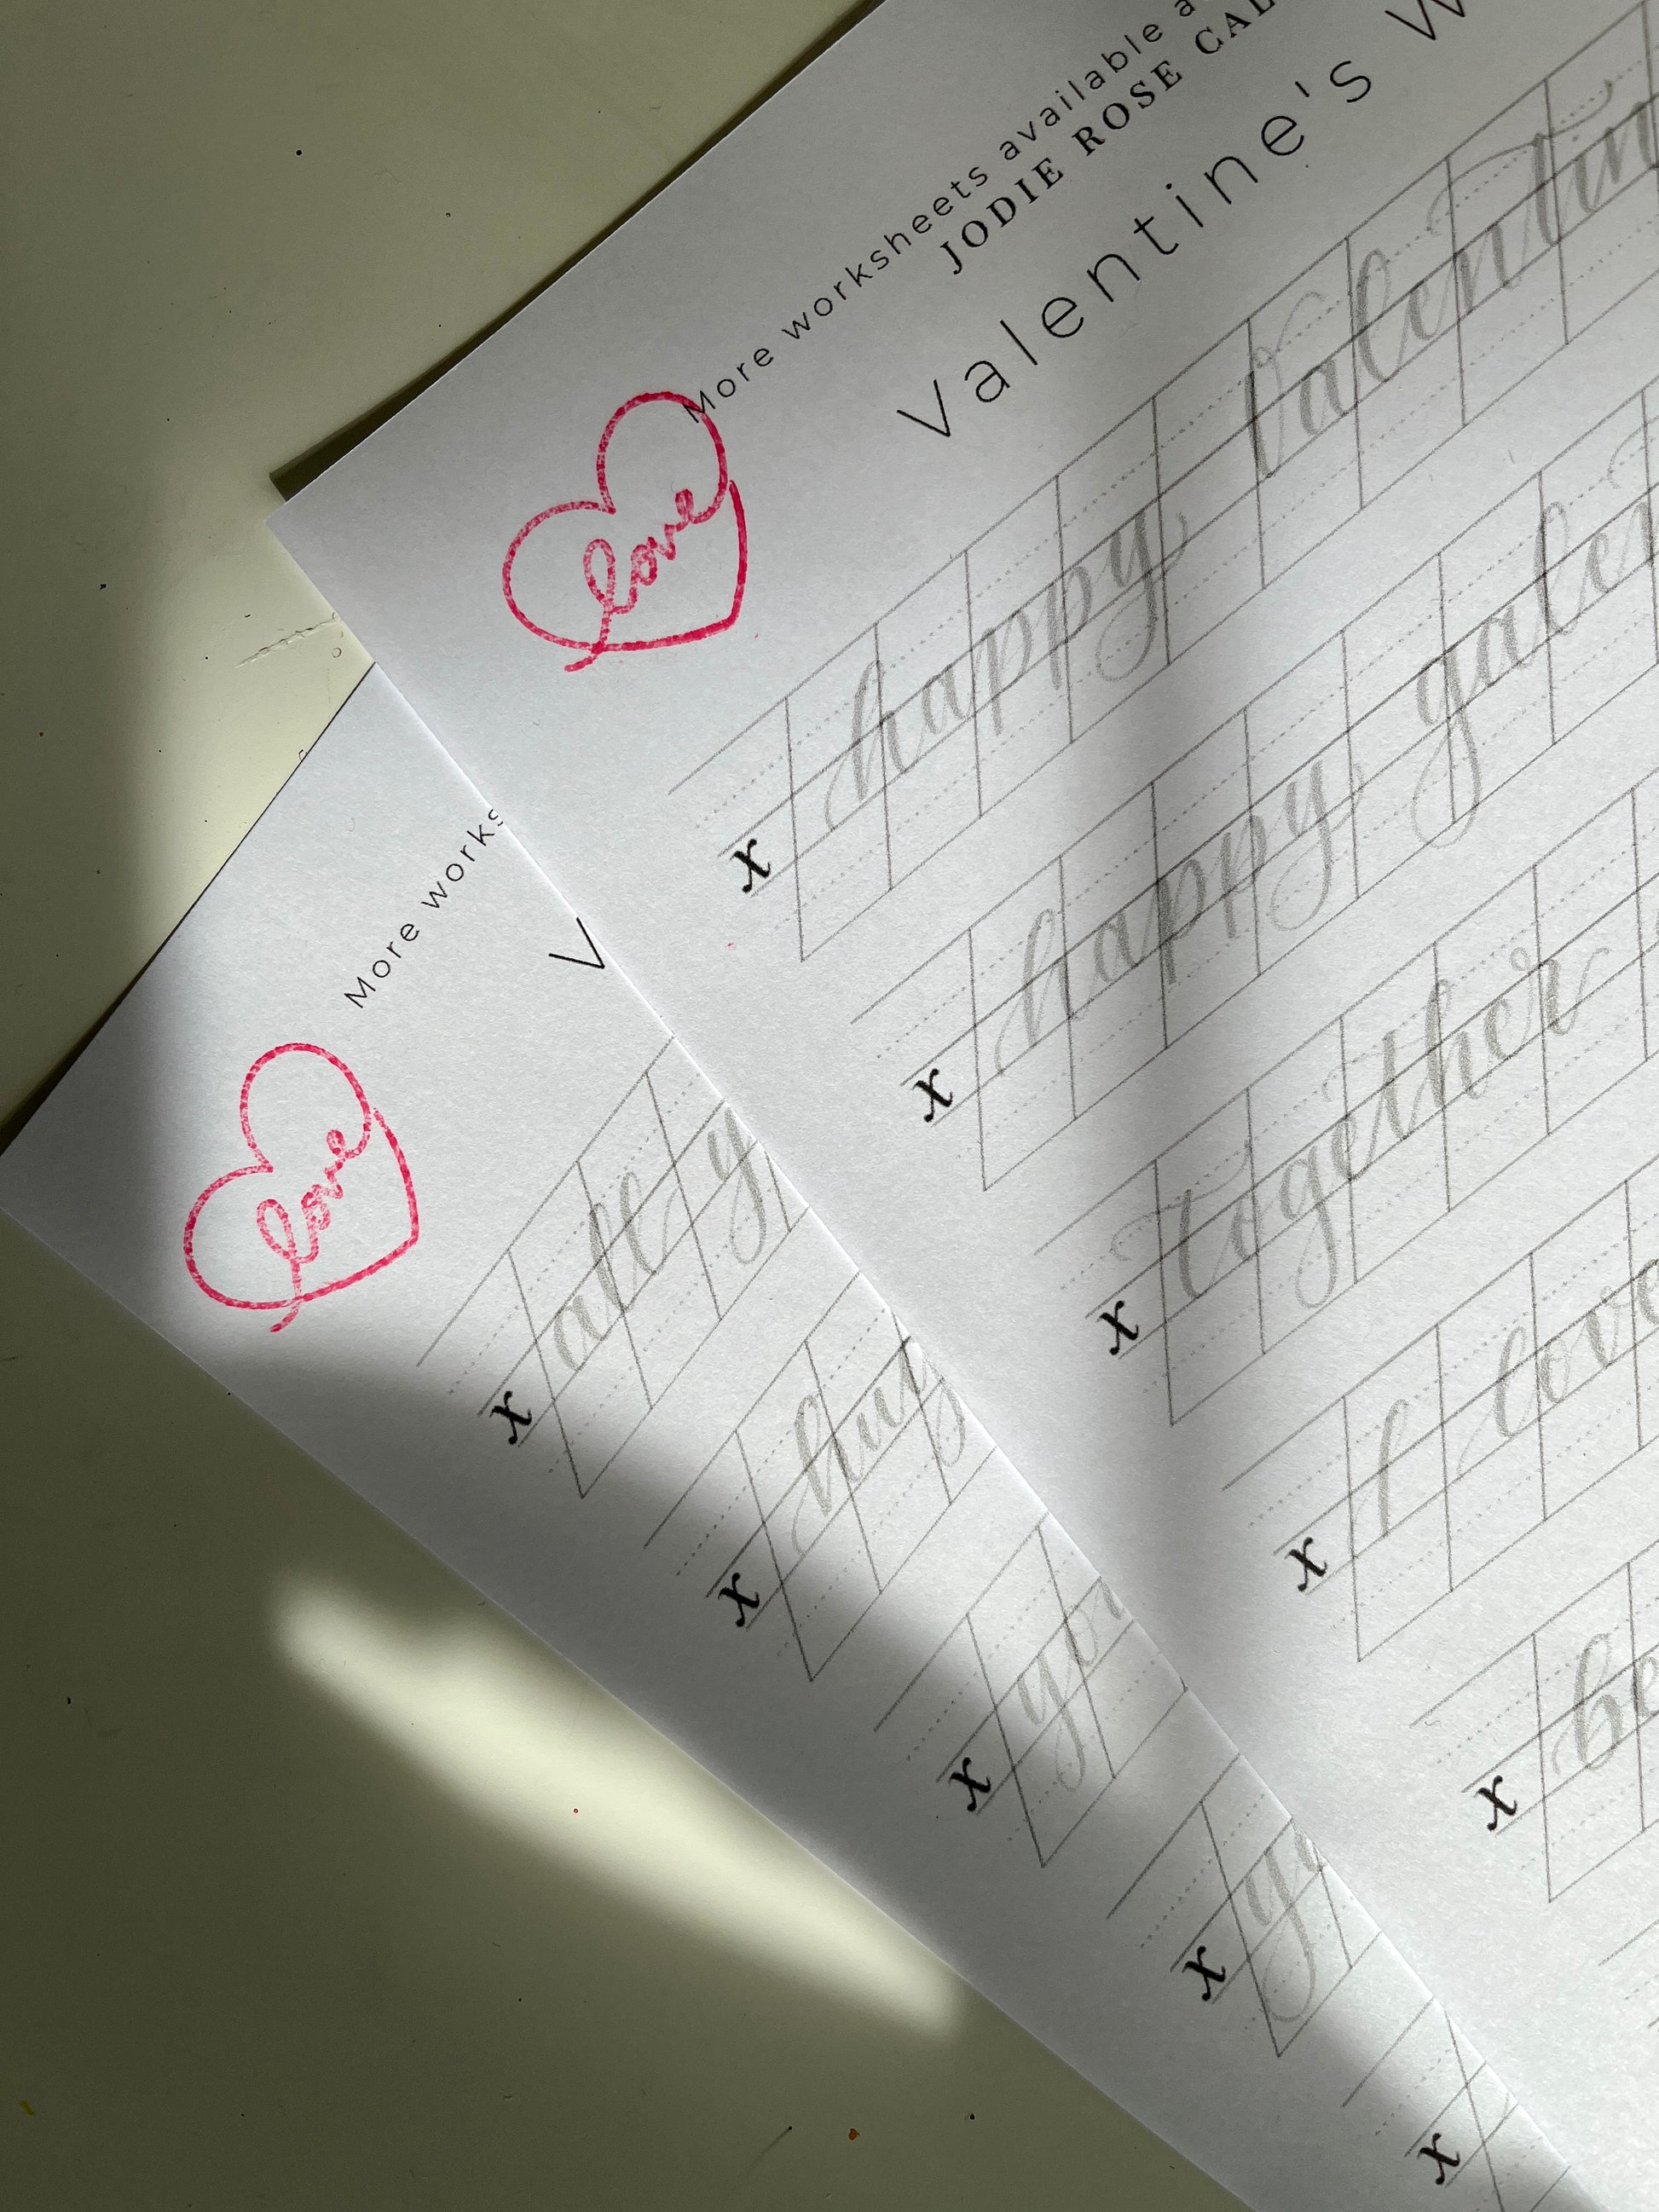 More worksheets available a
JODIE ROSE CAL
Valentine's W
love
x happy Valentin
x happy galen
x together
x I love
x be
More works
V
love
x all y
x hug
x you
x yo
x